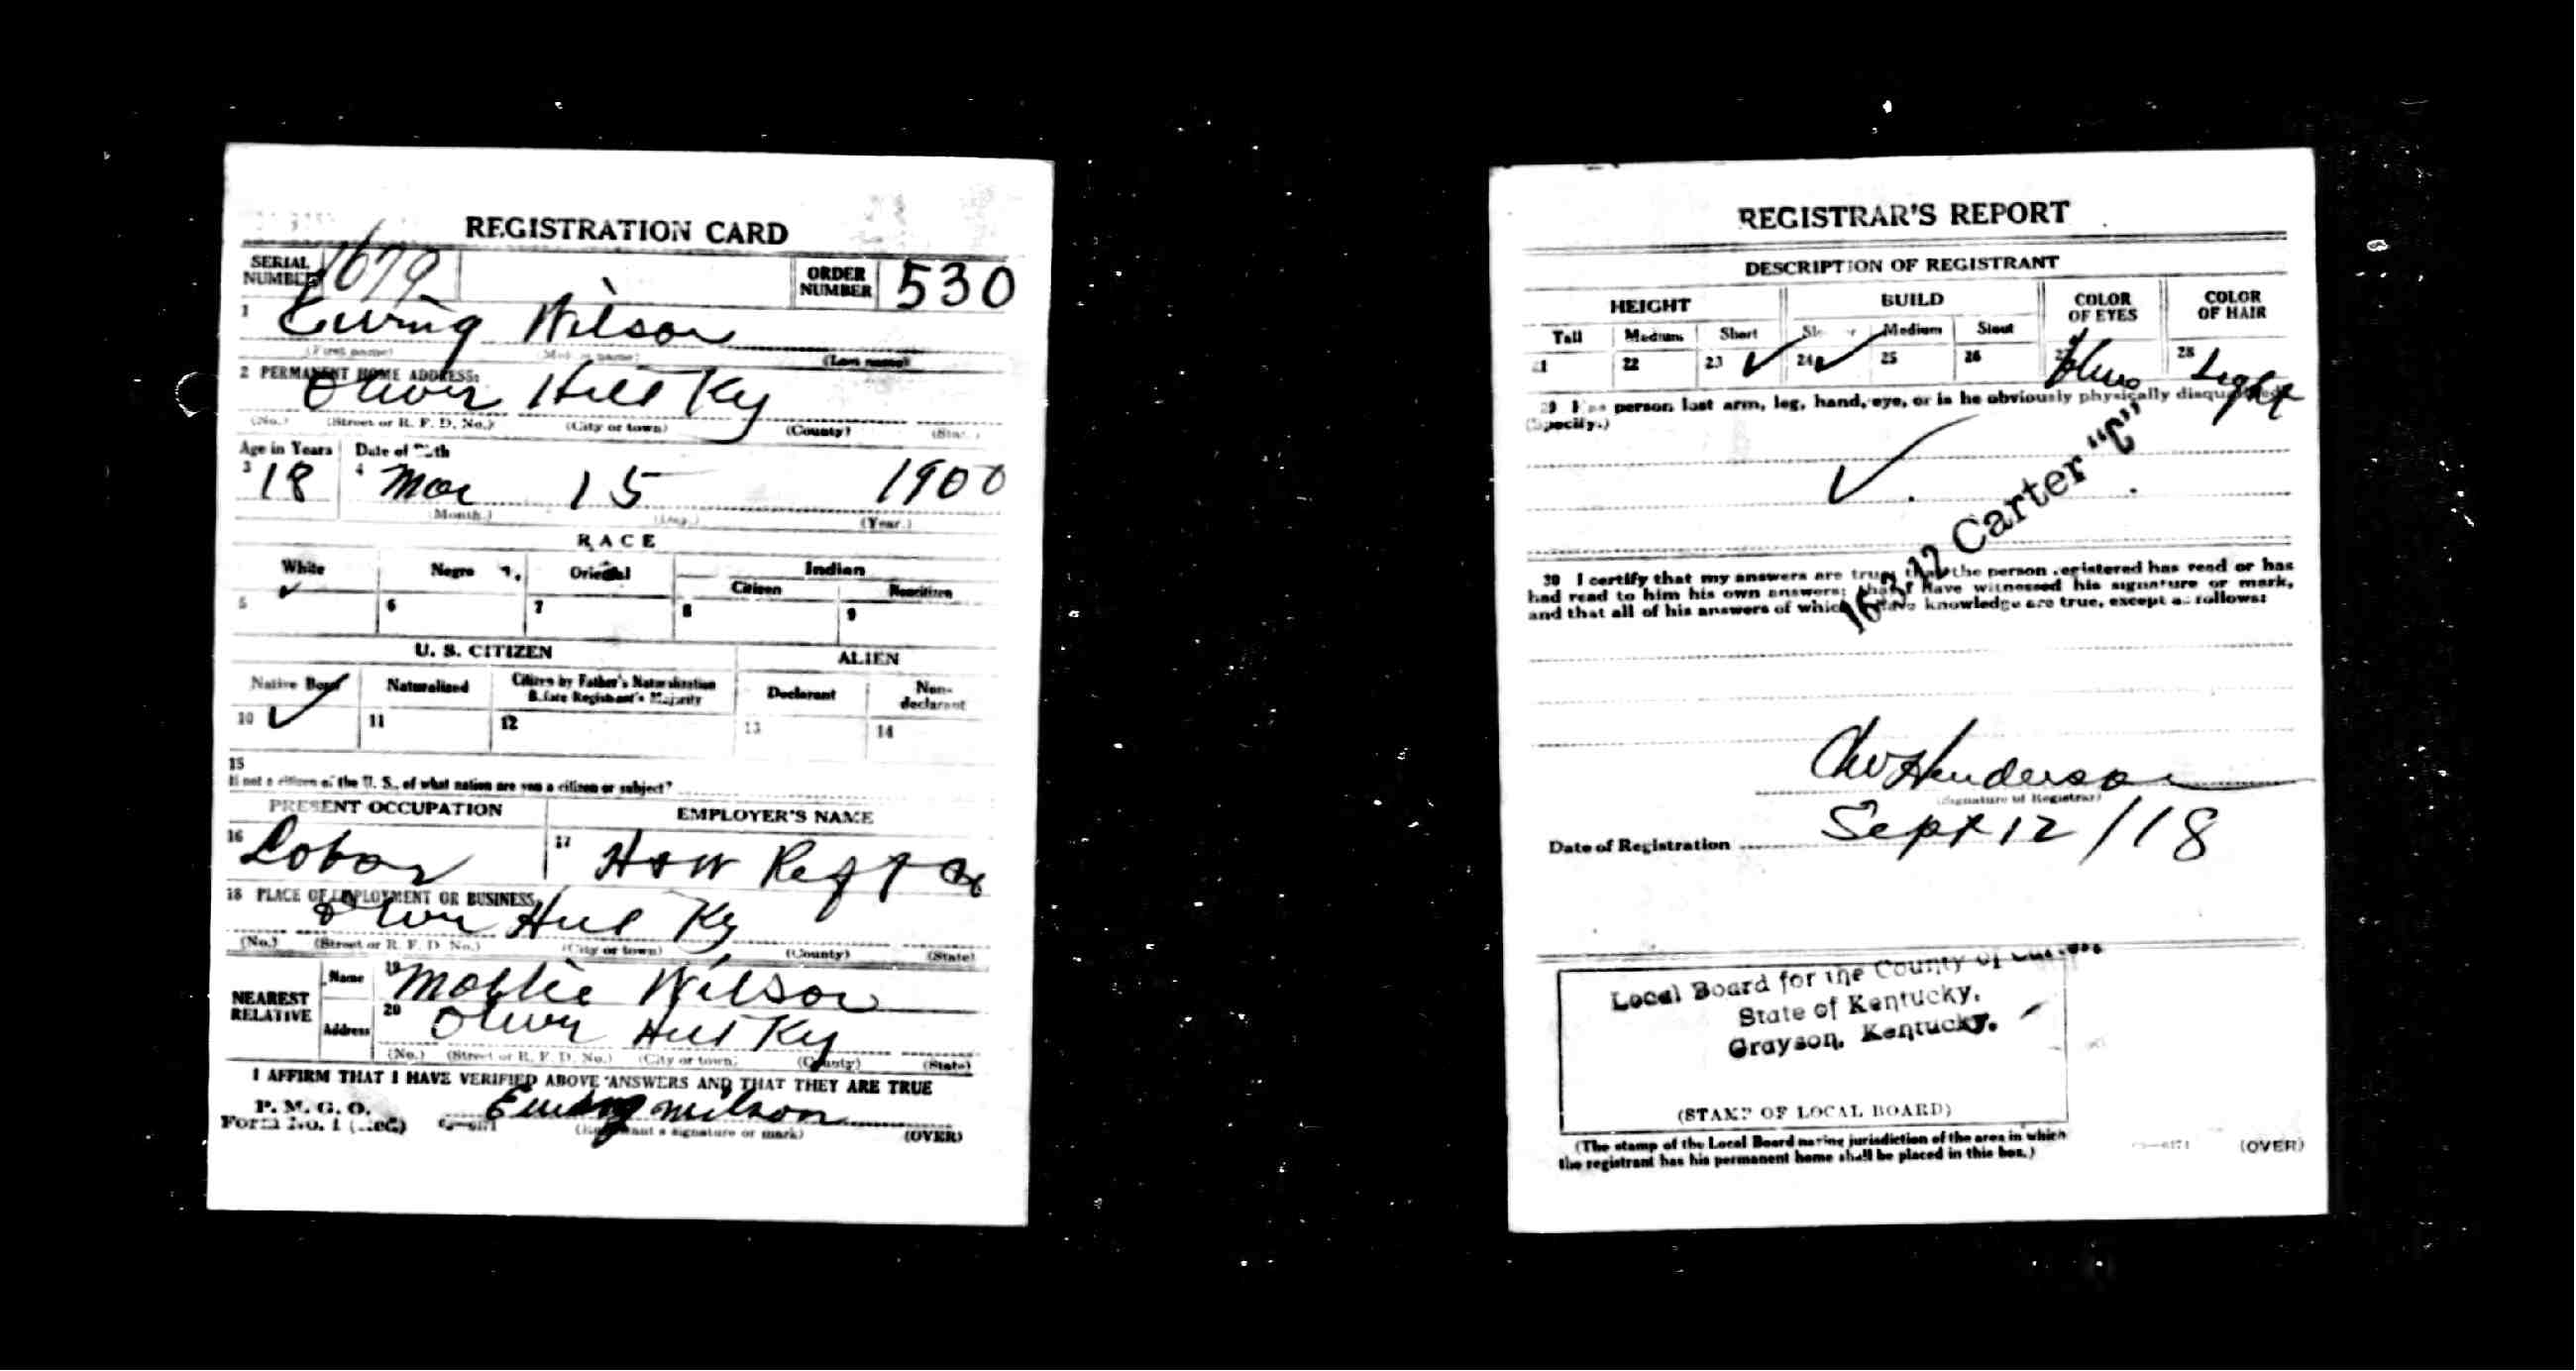 REGISTRATION CARD
SERIAL NUMBER 1679 ORDER NUMBER 530
1 Ewing Wilson
(First name) (Middle name) (Last name)
2 PERMANENT HOME ADDRESS:
Oliver Hill Ky
(No.) (Street or R. F. D. No.) (City or town) (County) (State)
Age in Years Date of Birth
3 18 4 Mar 15 1900
(Month.) (Day.) (Year.)
RACE
White Negro Oriental Indian
Citizen Noncitizen
5 6 7 8 9
U. S. CITIZEN ALIEN
Native Born Naturalized Citizen by Father's Naturalization Before Registrant's Majority Declarant Non-declarant
10 11 12 13 14
15
If not a citizen of the U. S., of what nation are you a citizen or subject?
PRESENT OCCUPATION EMPLOYER'S NAME
16 Labor 17 H & W
18 PLACE OF EMPLOYMENT OR BUSINESS:
Oliver Hill Ky
(No.) (Street or R. F. D. No.) (City or town) (County) (State)
NEAREST RELATIVE
Name 19 Mollie Wilson
Address 20 Oliver Hill Ky
(No.) (Street or R. F. D. No.) (City or town) (County) (State)
I AFFIRM THAT I HAVE VERIFIED ABOVE ANSWERS AND THAT THEY ARE TRUE
P. M. G. O.
Form No. 1 (Red) Ewing Wilson
(Registrant's signature or mark) (OVER)
REGISTRAR'S REPORT
DESCRIPTION OF REGISTRANT
HEIGHT BUILD COLOR OF EYES COLOR OF HAIR
Tall Medium Short Slender Medium Stout
21 22 23 24 25 26 27 Blue 28 Light
29 Has person lost arm, leg, hand, eye, or is he obviously physically disqualified?
(Specify.)
16-3-12 Carter "C"
30 I certify that my answers are true; that the person registered has read or has
had read to him his own answers; that I have witnessed his signature or mark,
and that all of his answers of which I have knowledge are true, except as follows:
Henderson
(Signature of Registrar)
Date of Registration Sept 12/18
Local Board for the County of Carter
State of Kentucky,
Grayson, Kentucky.
(STAMP OF LOCAL BOARD)
(The stamp of the Local Board having jurisdiction of the area in which
the registrant has his permanent home shall be placed in this box.)
(OVER)